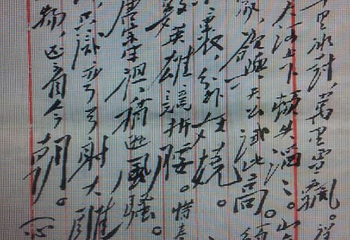 里冰封，萬里雪飄。望
大河上下，頓失滔滔。山
象，欲與天公試比高。須
裹，分外妖嬈。
數英雄競折腰。惜秦
唐宗宋祖，稍遜風騷。
只识弯弓射大雕
物，还看今朝。